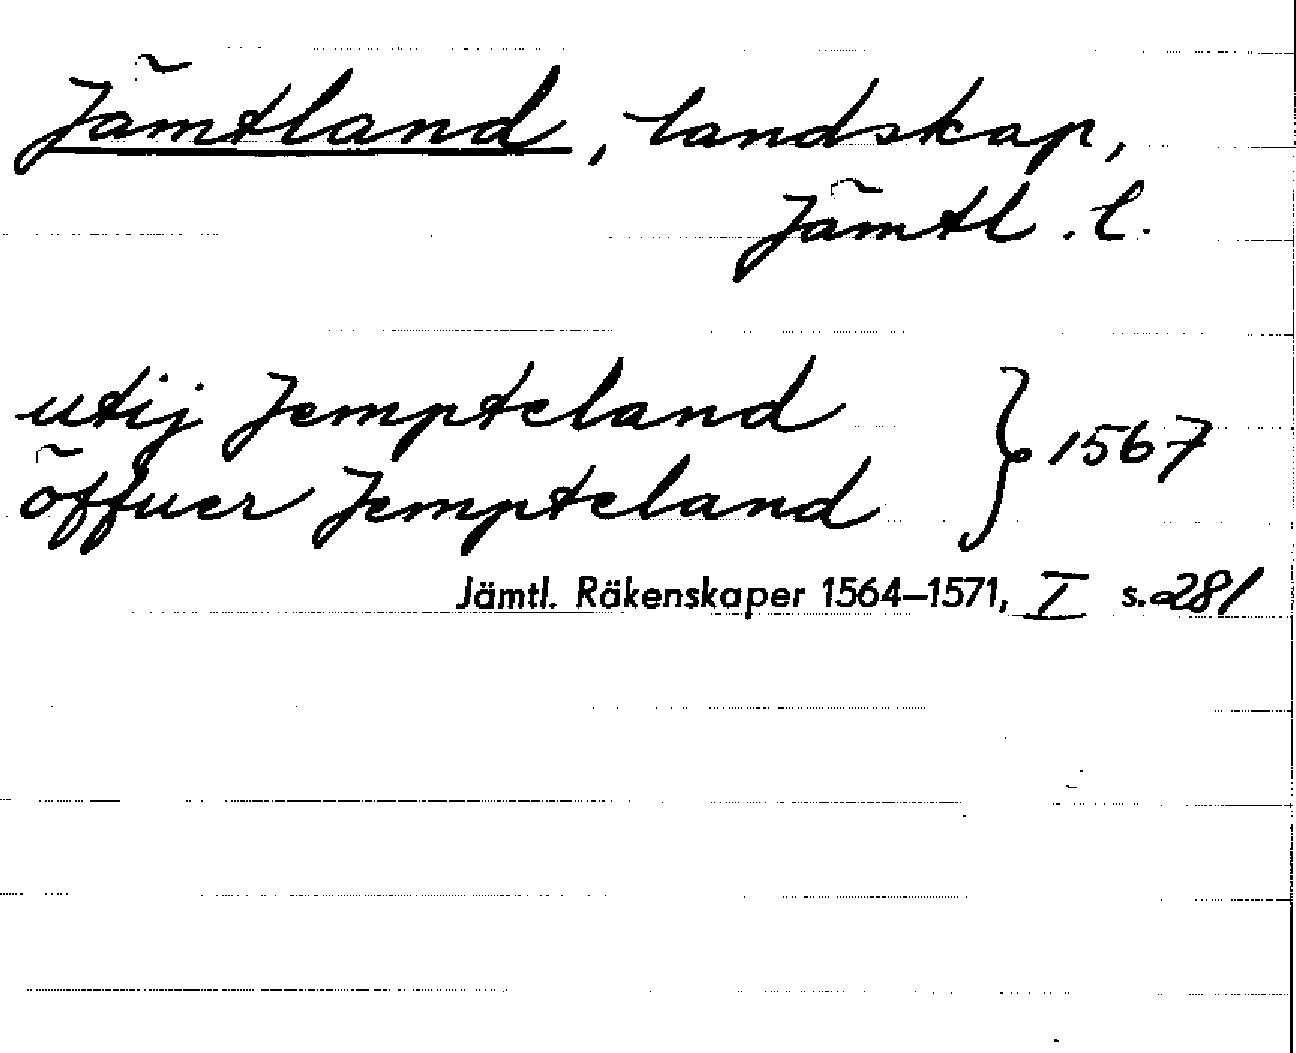 Jämtland, landskap,
Jämtl. l.
utij Jempteland
öffuer Jempteland } 1567
Jämtl. Räkenskaper 1564–1571, I s. 281